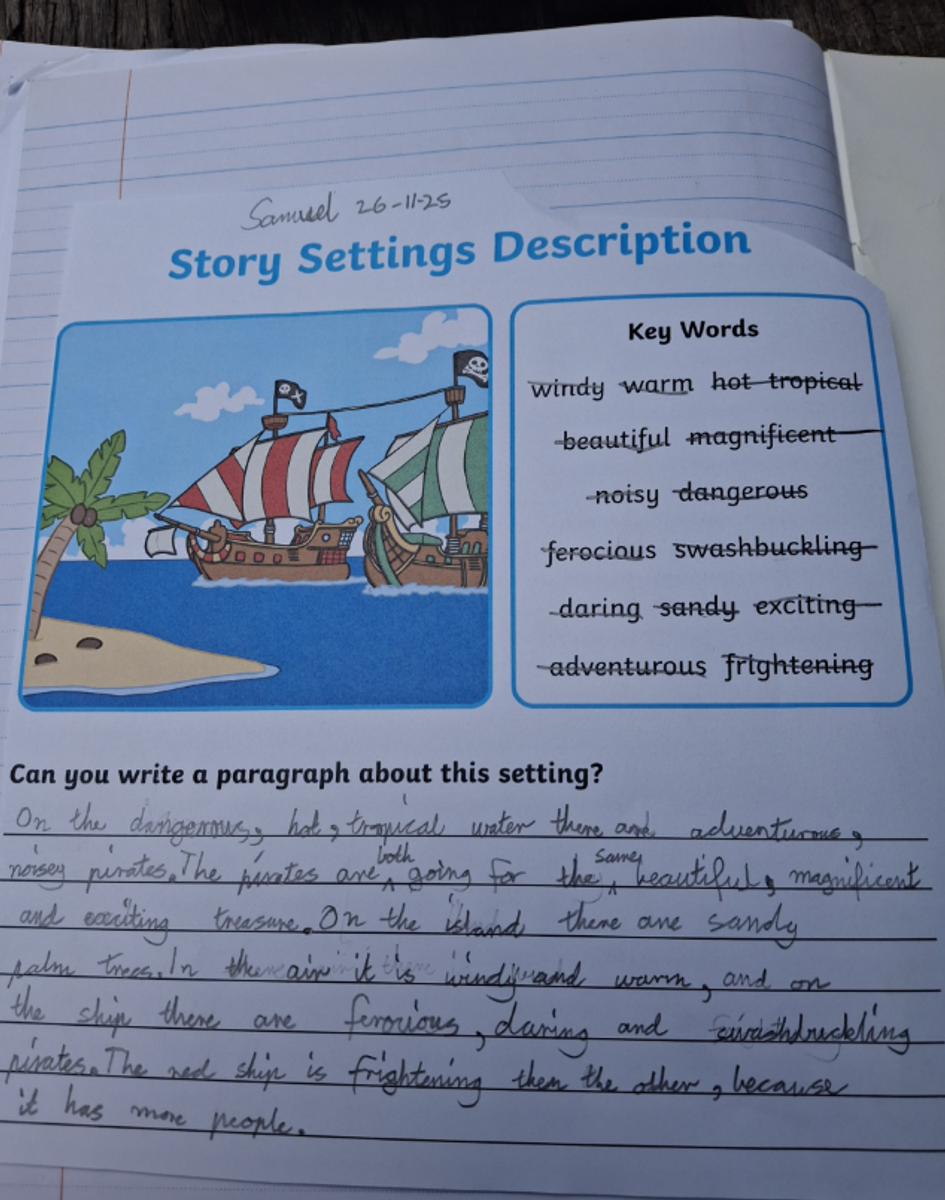 Samuel 26-11-25
Story Settings Description
Key Words
windy warm hot tropical
beautiful magnificent
noisy dangerous
ferocious swashbuckling
daring sandy exciting
adventurous frightening
Can you write a paragraph about this setting?
On the dangerous, hot, tropical water there are adventurous,
noisey pirates. The pirates are both going for the same, beautiful, magnificent
and exciting treasure. On the island there are sandy
palm trees. In the air it is windy and warm, and on
the ship there are ferocious, daring and
pirates. The red ship is frightening then the other, because
it has more people.